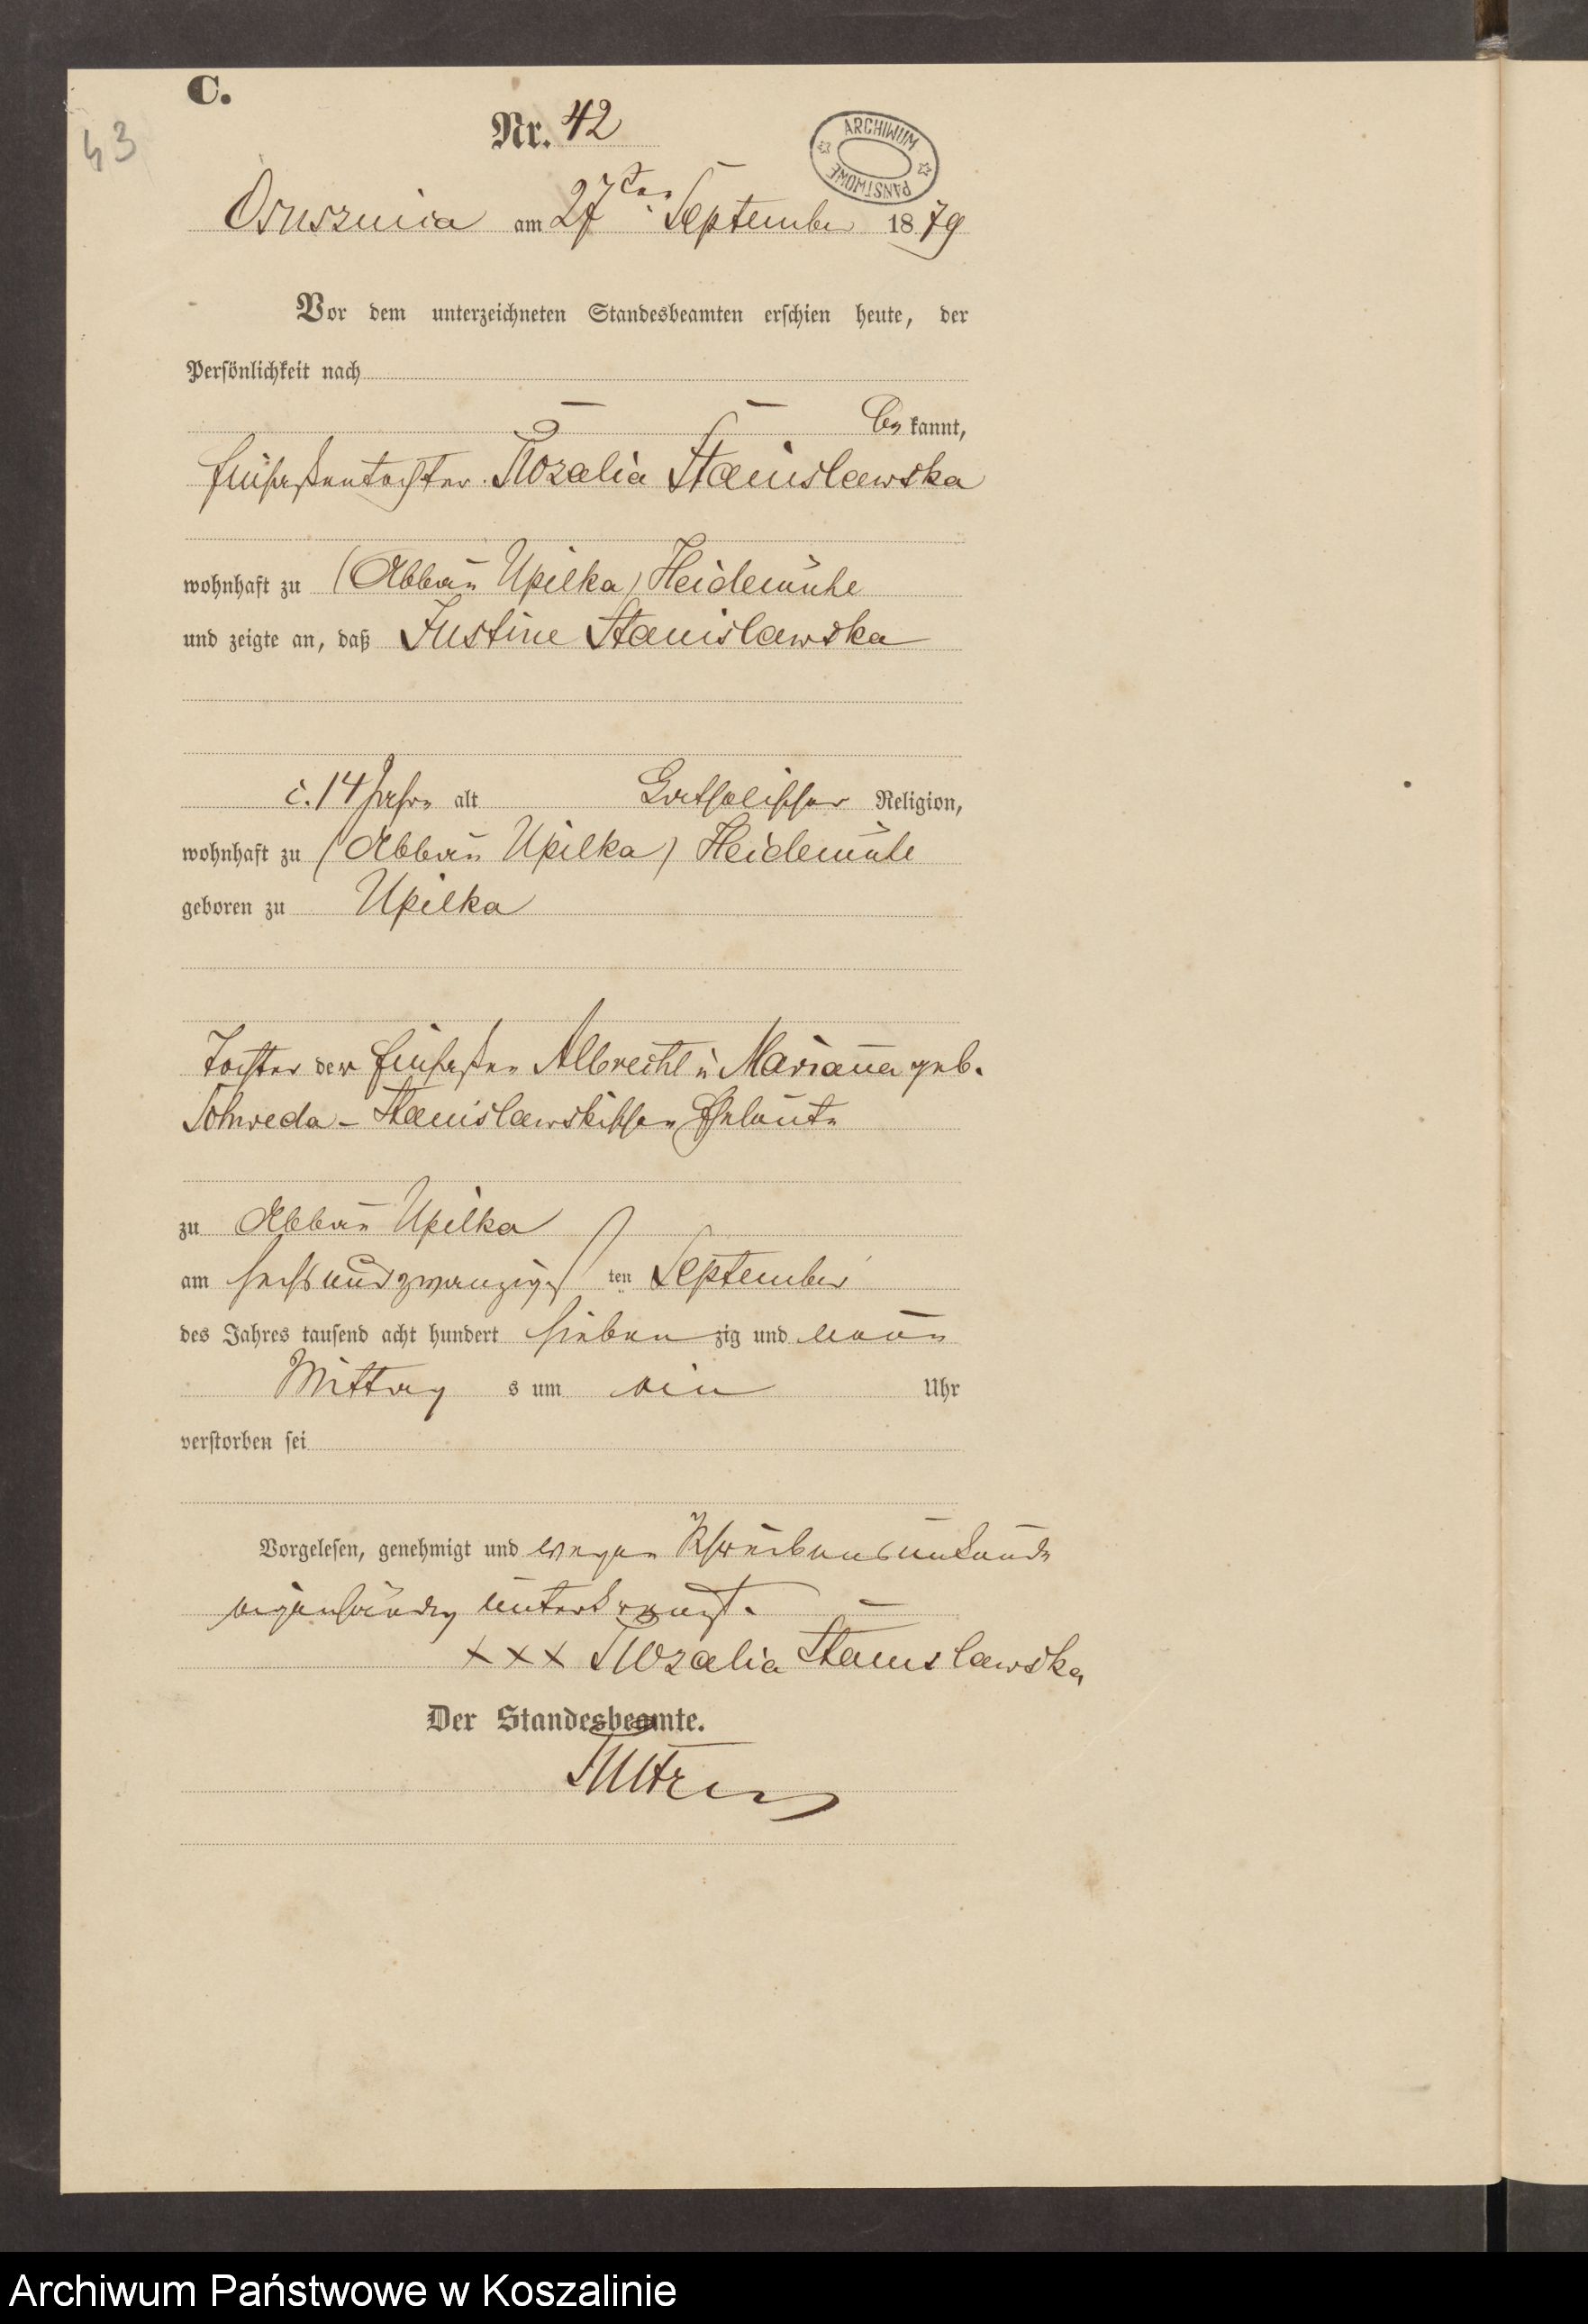 C.
43
Nr. 42
ARCHIWUM PAŃSTWOWE
Osusznica am 27ten September 1879
Vor dem unterzeichneten Standesbeamten erschien heute, der
Persönlichkeit nach
be kannt,
Einsaßentochter Rozalia Stanislawska
wohnhaft zu (Abbau Upilka) Heidemühle
und zeigte an, daß Justine Stanislawska
c. 14 Jahre alt katholischer Religion,
wohnhaft zu (Abbau Upilka) Heidemühle
geboren zu Upilka
Tochter der Einsaßen Albrecht u Marianna geb.
Schweda - Stanislawskischen Eheleute
zu Abbau Upilka
am sechsundzwanzigs ten September
des Jahres tausend acht hundert sieben zig und neun
Mittag s um ein Uhr
verstorben sei
Vorgelesen, genehmigt und wegen Schreibensunkunde
eigenhändig unterkreuzt.
xxx Rozalia Stanislawska
Der Standesbeamte.
Archiwum Państwowe w Koszalinie